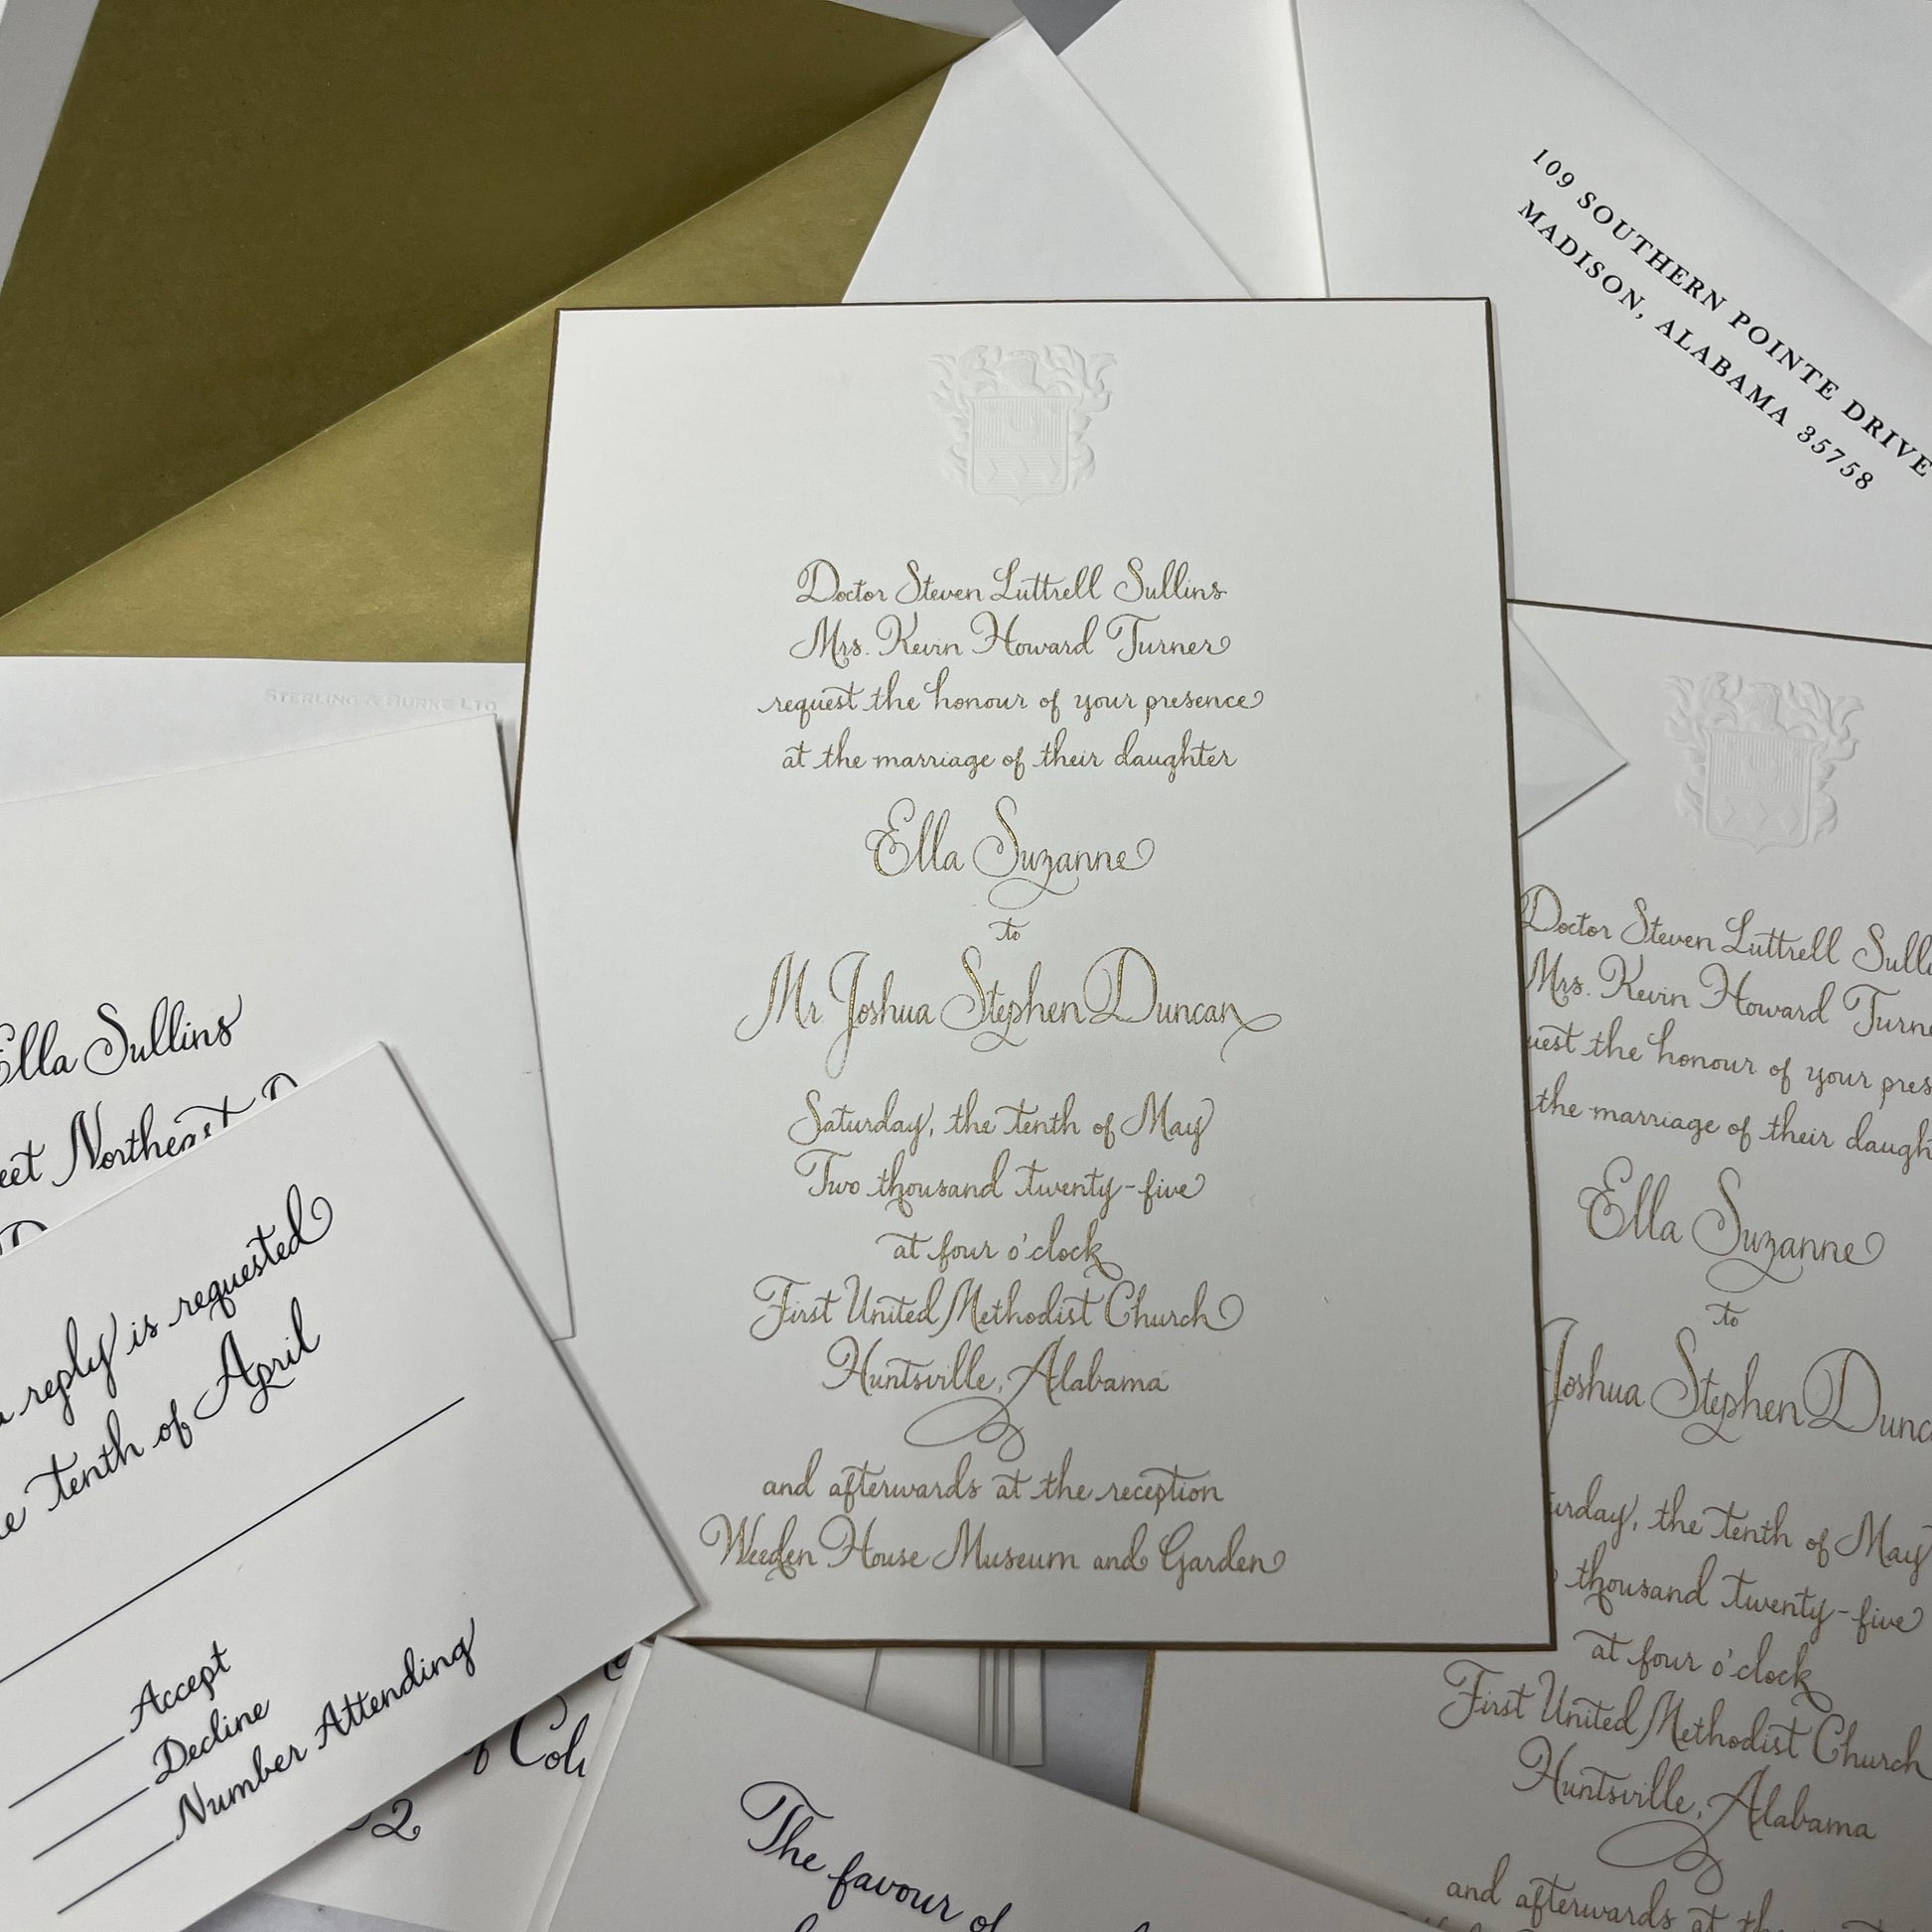 109 SOUTHERN POINTE DRIVE
MADISON, ALABAMA 35758
STERLING & BURKE LTD
Doctor Steven Luttrell Sullins
Mrs. Kevin Howard Turner
request the honour of your presence
at the marriage of their daughter
Ella Suzanne
to
Mr. Joshua Stephen Duncan
Saturday, the tenth of May
Two thousand twenty-five
at four o'clock
First United Methodist Church
Huntsville, Alabama
and afterwards at the reception
Weeden House Museum and Garden
Doctor Steven Luttrell
Mrs. Kevin Howard
the honour of your
the marriage of their
Ella Suzanne
to
Joshua Stephen
the tenth of May
thousand twenty-five
at four o'clock
First United Methodist Church
Huntsville, Alabama
and afterwards at the
Ella Sullins
Northeast
reply is requested
tenth of April
Accept
Decline
Number Attending
2
The favour of